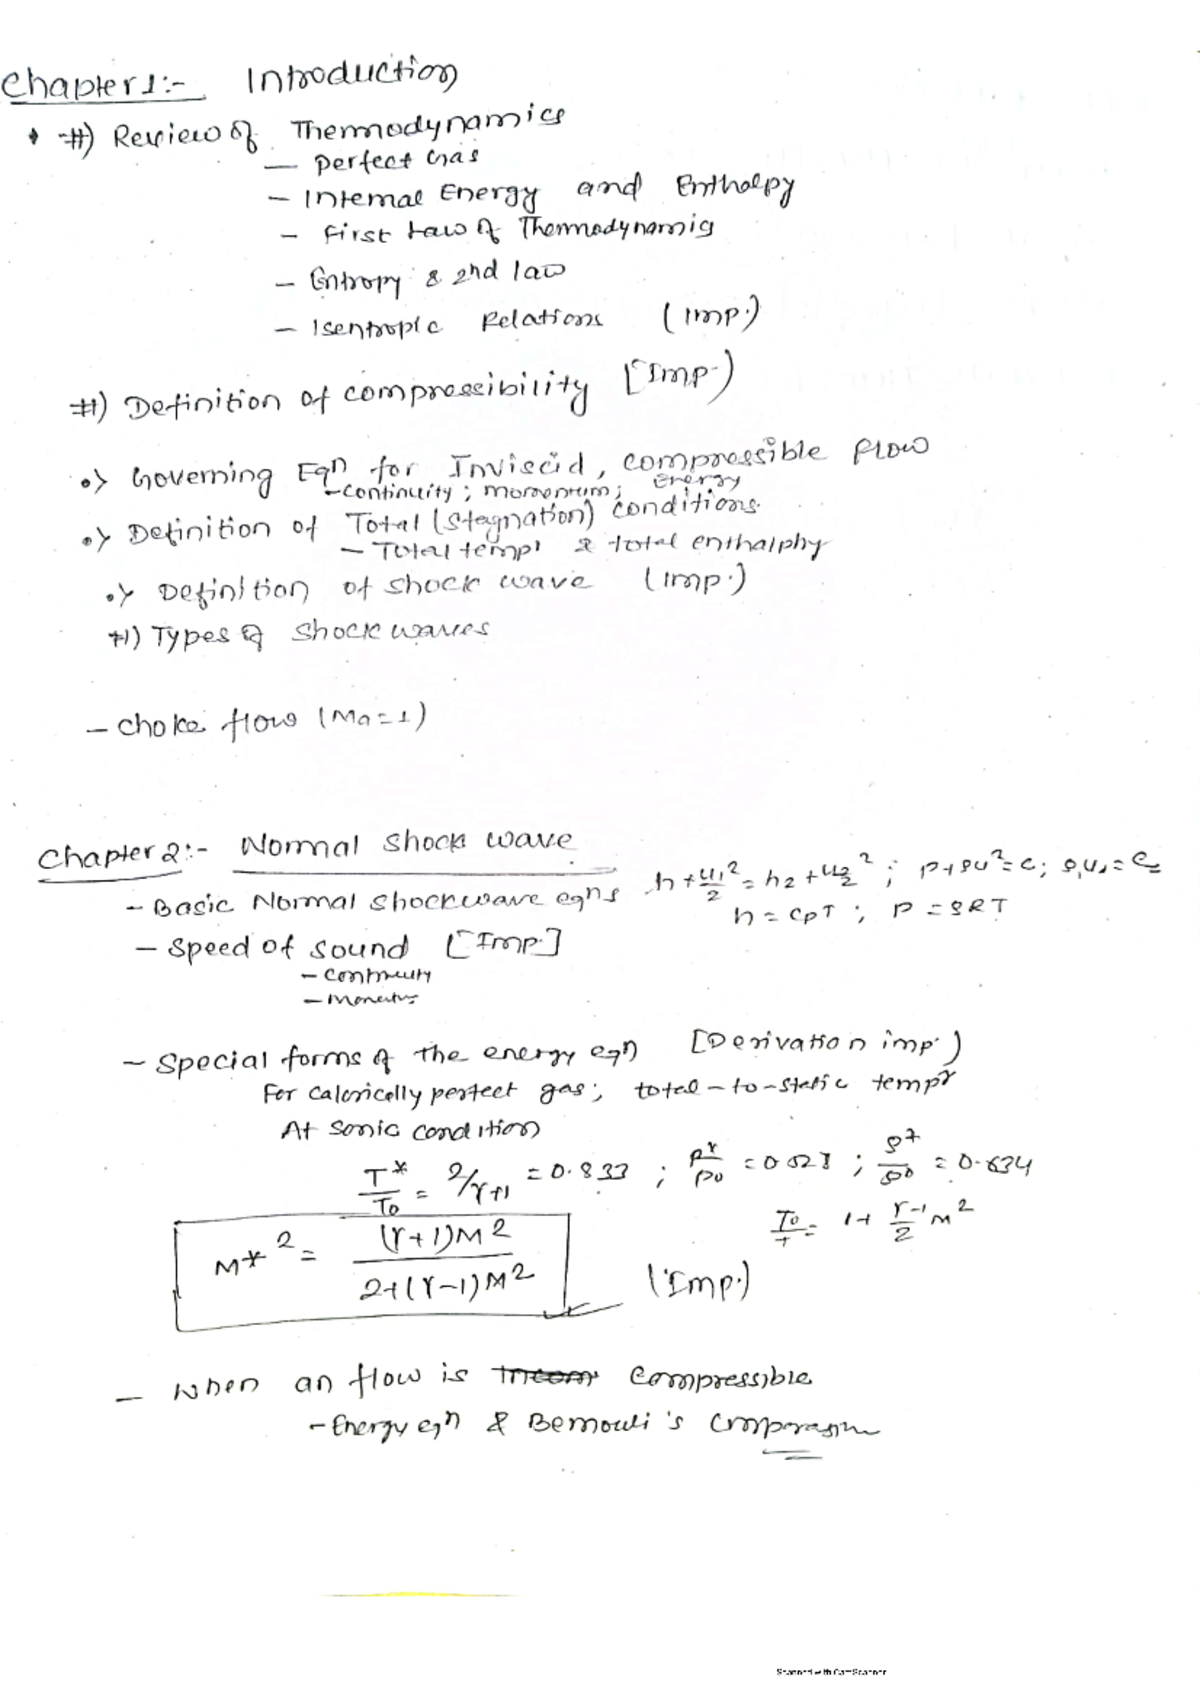 Chapter 1:- Introduction
#) Review of Thermodynamics
— perfect Gas
- Internal Energy and Enthalpy
- First Law of Thermodynamics
- Entropy & 2nd law
- Isentropic Relations (Imp.)
#) Definition of compressibility [Imp.)
•> Governing Eqn for Inviscid, compressible flow
- continuity ; momentum; Energy
•> Definition of Total (stagnation) conditions.
- Total tempr & total enthalphy
•> Definition of shock wave (Imp.)
#) Types of shock waves
- choke flow (Ma=1)
Chapter 2:- Normal shock wave
- Basic Normal shockwave eqns h+u1²/2 = h2+u2²/2 ; P+ρu²=c; ρ1u1=c
h = cpT ; P = ρRT
- speed of sound [Imp.]
- continuity
- Special forms of the energy eqn [Derivation imp.)
For calorically perfect gas; total-to-static tempr
At sonic condition
T*/To = 2/γ+1 = 0.833 ; P*/Po = 0.528 ; ρ*/ρo = 0.634
To/T = 1+ γ-1/2 M²
M*² = (γ+1)M²/2+(γ-1)M² (Imp.)
- When an flow is compressible
- Energy eqn & Bernouli's comparasion
Scanned with CamScanner